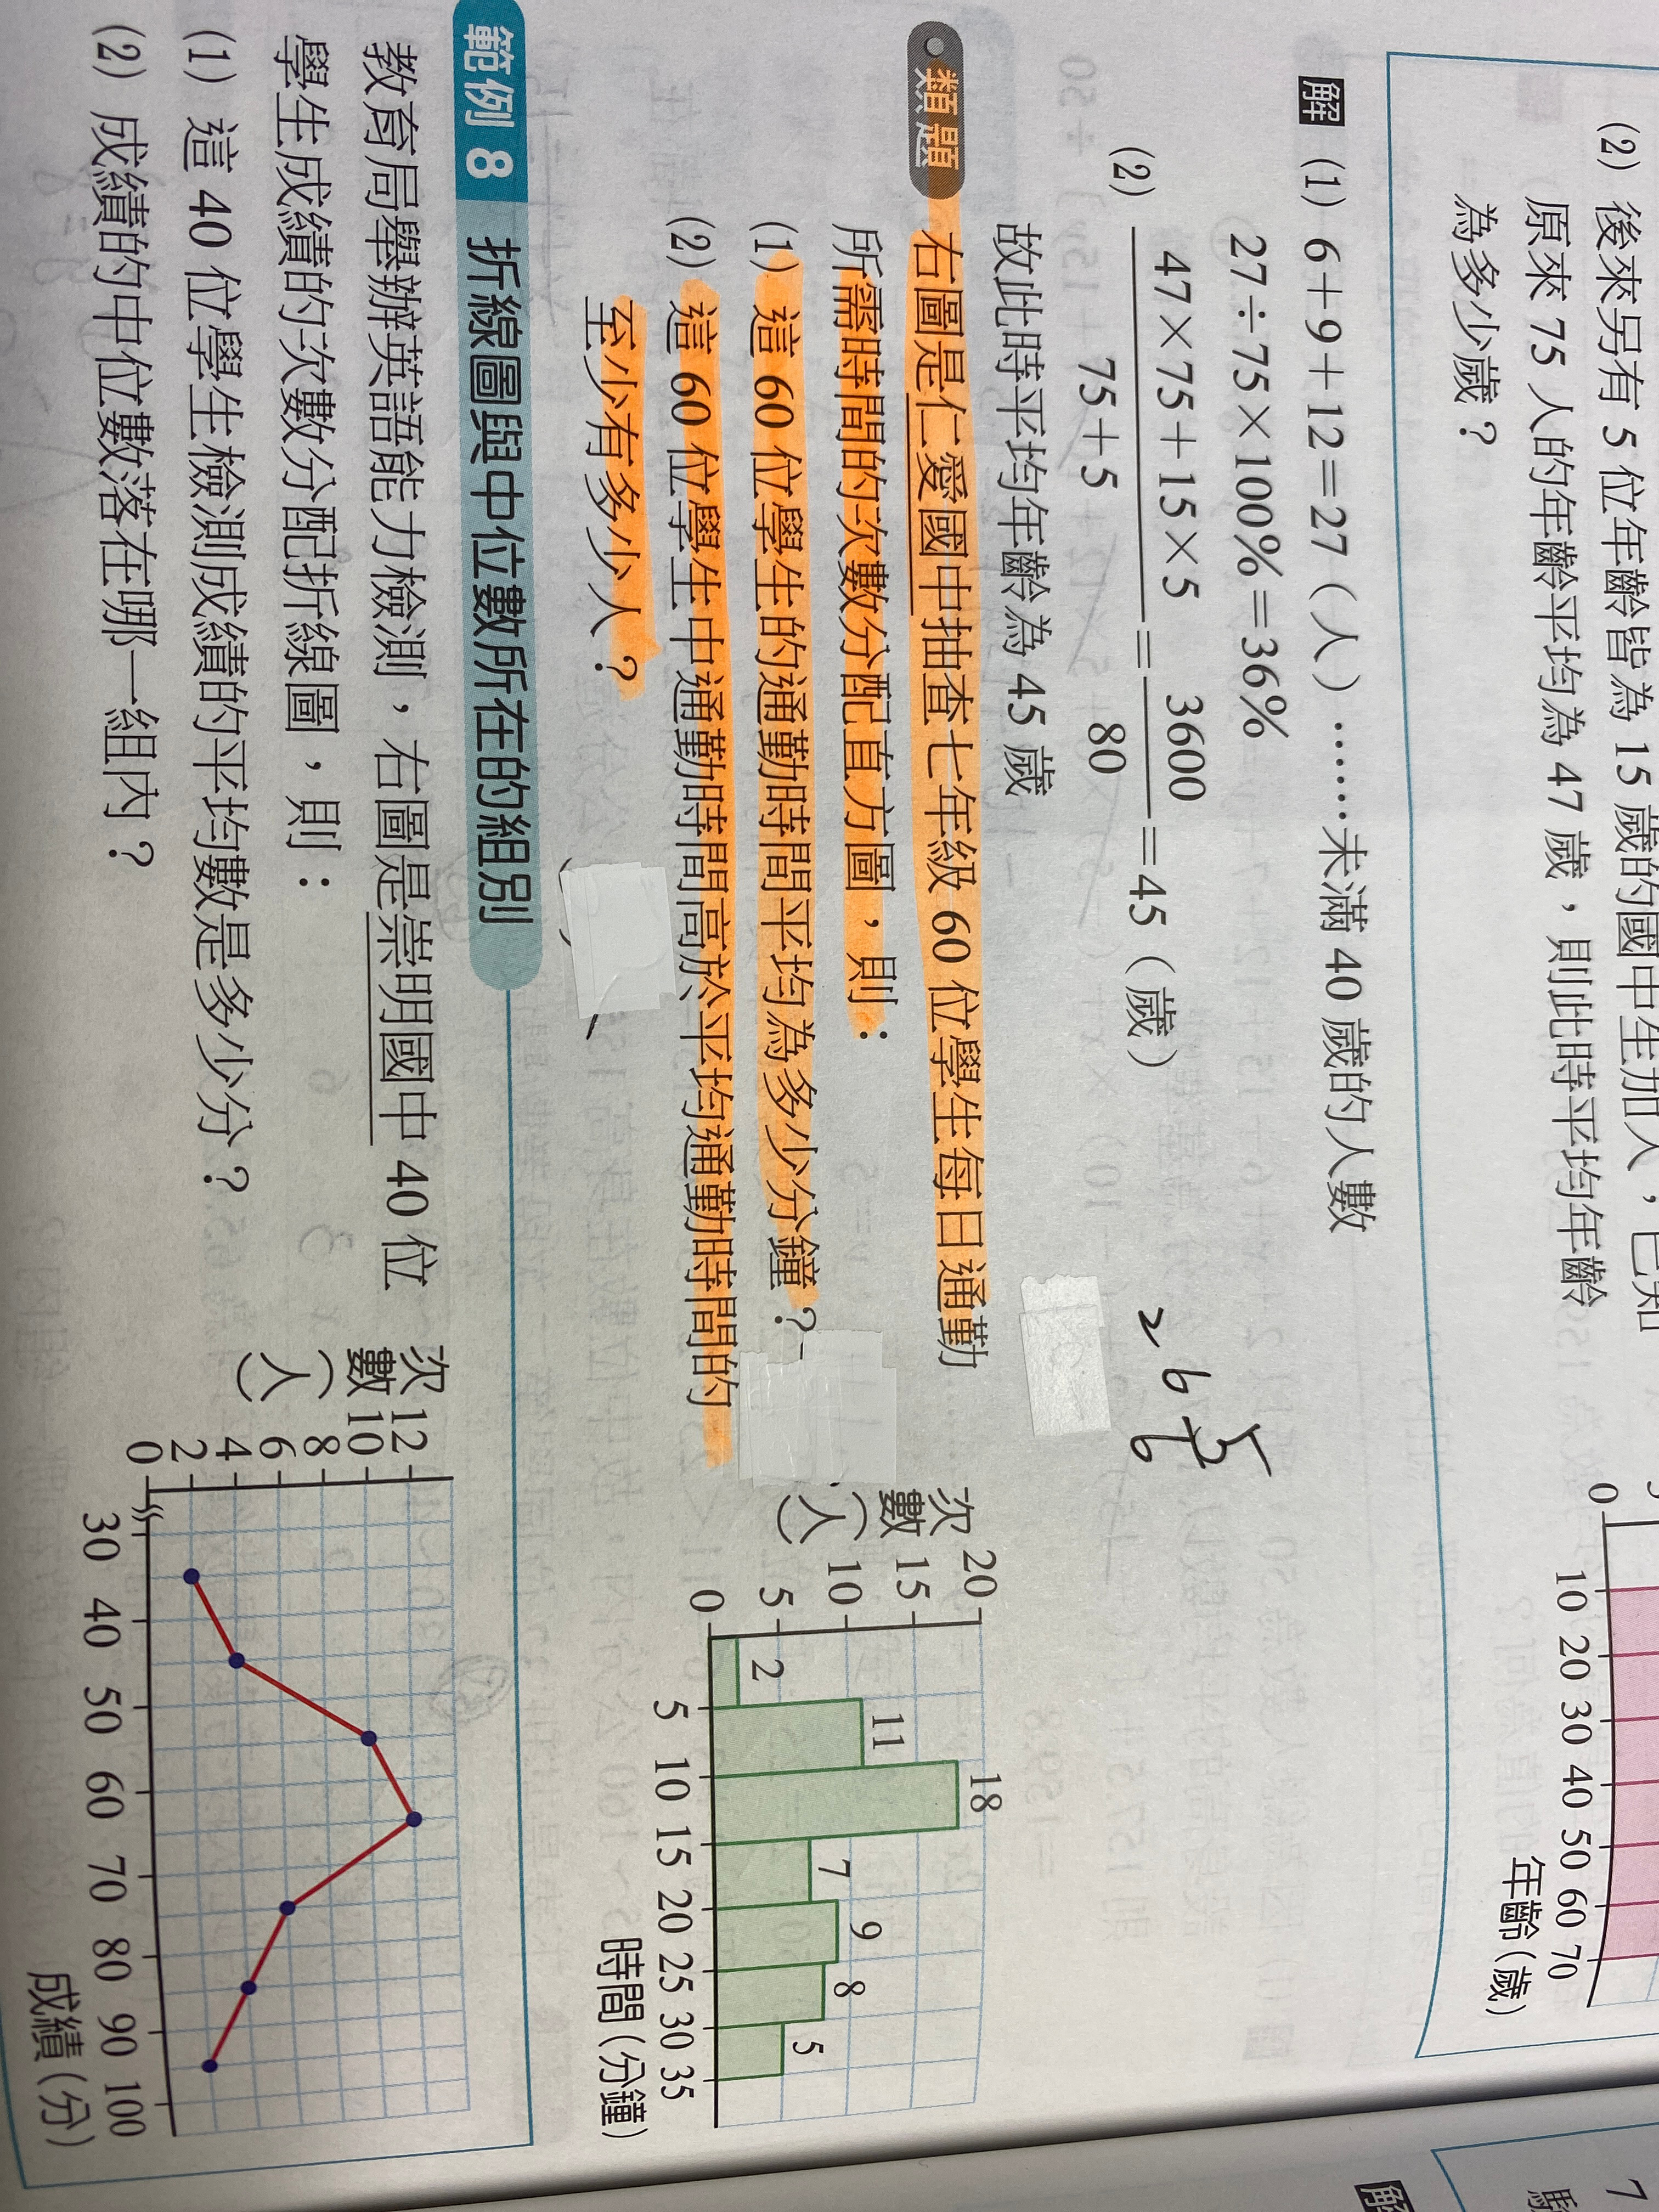 (2) 後來另有 5 位年齡皆為 15 歲的國中生加入，已知
原來 75 人的年齡平均為 47 歲，則此時平均年齡
為多少歲？
0 10 20 30 40 50 60 70
年齡(歲)
解 (1) 6＋9＋12＝27（人）……未滿 40 歲的人數
27÷75×100%＝36%
(2) 47×75＋15×5 / 75＋5 ＝ 3600 / 80 ＝45（歲）
故此時平均年齡為 45 歲
類題 右圖是仁愛國中抽查七年級 60 位學生每日通勤
所需時間的次數分配直方圖，則：
(1) 這 60 位學生的通勤時間平均為多少分鐘？
(2) 這 60 位學生中通勤時間高於平均通勤時間的
至少有多少人？
次數(人)
20
15
10
5
0
2 11 18 7 9 8 5
5 10 15 20 25 30 35
時間(分鐘)
範例 8 折線圖與中位數所在的組別
教育局舉辦英語能力檢測，右圖是崇明國中 40 位
學生成績的次數分配折線圖，則：
(1) 這 40 位學生檢測成績的平均數是多少分？
(2) 成績的中位數落在哪一組內？
次數(人)
12
10
8
6
4
2
0
30 40 50 60 70 80 90 100
成績(分)
解
7